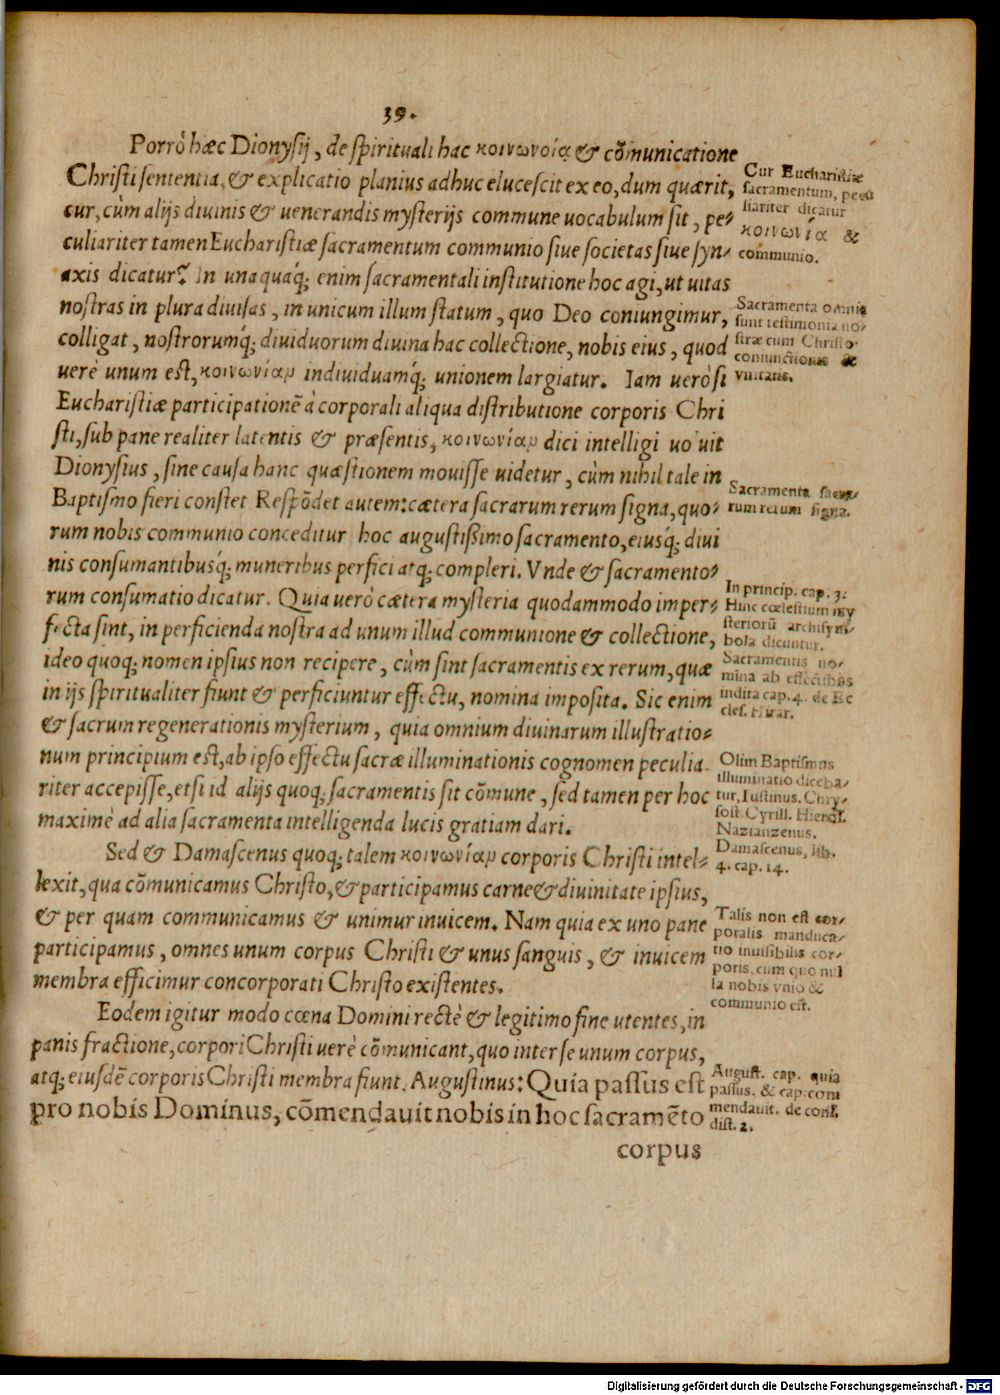 39.
Porrò hæc Dionysij, de spirituali hac κοινωνοία & cõmunicatione
Christi sententia, & explicatio planius adhuc elucescit ex eo, dum quærit,
cur, cùm alijs diuinis & uenerandis mysterijs commune uocabulum sit, pe-
culiariter tamen Eucharistiæ sacramentum communio siue societas siue syn-
axis dicatur? In unaquaq́; enim sacramentali institutione hoc agi, ut uitas
nostras in plura diuisas, in unicum illum statum, quo Deo coniungimur,
colligat, nostrorumq́; diuiduorum diuina hac collectione, nobis eius, quod
uerè unum est, κοινωνίαμ indiuiduamq́; unionem largiatur. Iam uerò si
Eucharistiæ participationē à corporali aliqua distributione corporis Chri
sti, sub pane realiter latentis & præsentis, κοινωνίαμ dici intelligi uoluit
Dionysius, sine causa hanc quæstionem mouisse uidetur, cùm nihil tale in
Baptismo fieri constet Respõdet autem: cætera sacrarum rerum signa, quo-
rum nobis communio conceditur hoc augustißimo sacramento, eiusq́; diui
nis consumantibusq́; muneribus perfici atq; compleri. Vnde & sacramento-
rum consumatio dicatur. Quia uerò cætera mysteria quodammodo imper-
fecta sint, in perficienda nostra ad unum illud communione & collectione,
ideo quoq; nomen ipsius non recipere, cùm sint sacramentis ex rerum, quæ
in ijs spiritualiter fiunt & perficiuntur effectu, nomina imposita. Sic enim
& sacrum regenerationis mysterium, quia omnium diuinarum illustratio-
num principium est, ab ipso effectu sacræ illuminationis cognomen peculia-
riter accepisse, etsi id alijs quoq; sacramentis sit cõmune, sed tamen per hoc
maximè ad alia sacramenta intelligenda lucis gratiam dari.
Sed & Damascenus quoq; talem κοινωνίαμ corporis Christi intel-
lexit, qua cõmunicamus Christo, & participamus carne & diuinitate ipsius,
& per quam communicamus & unimur inuicem. Nam quia ex uno pane
participamus, omnes unum corpus Christi & unus sanguis, & inuicem
membra efficimur concorporati Christo existentes.
Eodem igitur modo cœna Domini rectè & legitimo fine utentes, in
panis fractione, corpori Christi uerè cõmunicant, quo inter se unum corpus,
atq; eiusdē corporis Christi membra fiunt. Augustinus: Quia passus est
pro nobis Dominus, cõmendauit nobis in hoc sacramēto
corpus
Cur Eucharistiæ
sacramentum, pecu
liariter dicatur
κοινωνία &
communio.
Sacramenta omnia
sunt testimonia no-
stræ cum Christo
coniunctionis &
vnitatis.
Sacramenta sacra-
rum rerum signa.
In princip. cap. 3.
Hinc cœlestium my
steriorũ archisym-
bola dicuntur.
Sacramentis no-
mina ab effectibus
indita cap. 4. de Ec
cles. Hirar.
Olim Baptismus
illuminatio diceba-
tur, Iustinus. Chry-
sost. Cyrill. Hieros.
Nazianzenus.
Damascenus, lib.
4. cap. 14.
Talis non est cor-
poralis manduca-
tio inuisibilis cor-
poris, cum quo nul
la nobis vnio &
communio est.
August. cap. quia
passus. & cap. com
mendauit. de cons.
dist. 2.
Digitalisierung gefördert durch die Deutsche Forschungsgemeinschaft - DFG